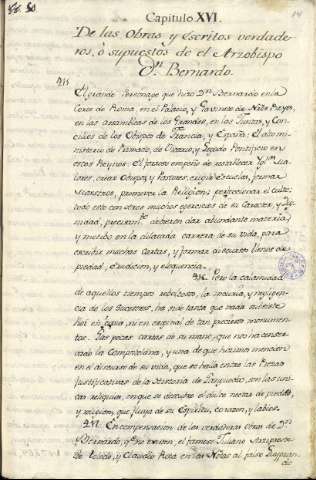 14
Capitulo XVI.
De las Obras y Escritos verdade-
ros, ò supuestos de el Arzobispo
Dn. Bernardo.
El grande Personage que hizo Dn. Bernardo en la
Corte de Roma, en el Palacio, y Gavinete de
en las assambleas de los Grandes, en las Juntas, y Con-
cilios de los Obispos de Francia, y España: El alto mi-
nisterio de Primado, de Vicario, y Legado Pontificio en
estos Reynos. El
zores, criar Obispos, y Pastores, erigir Escuelas, formar
Maestros, promover la Religion, y perfeccionar el culto:
todo esto con otros muchos ejercicios de su Caracter, y Dig-
nidad, precisamte. debieron dar abundante materia,
y motibo en la dilatada carrera de su vida, para
escribir muchas Cartas, y formar discursos llenos de
piedad, erudicion, y eloquencia.
Pero la calamidad
de aquellos tiempos rebueltos, la incuria, y negligen-
cia de los succesores, ha hecho tanta que nada existente
hoi en copia, ni en original de tan precioso monumen-
to. Las pocas cartas de su mano, que nos ha conser-
vado la Compostelana, y una de que haremos mencion
en el discurso de su vida, que se halla entre las Piezas
Justificativas de la Historia de Languedoc, son las uni-
cas reliquias, en que se descubre el dulce nectar de piedad,
y religion, que fluia de su Espiritu, corazon, y labios.
En compensacion de las verdaderas obras de Dn.
Bernardo, qe. no existen, el famoso Juliano Arcipreste
de Toledo, y Claudio Rosa en las Notas al falso